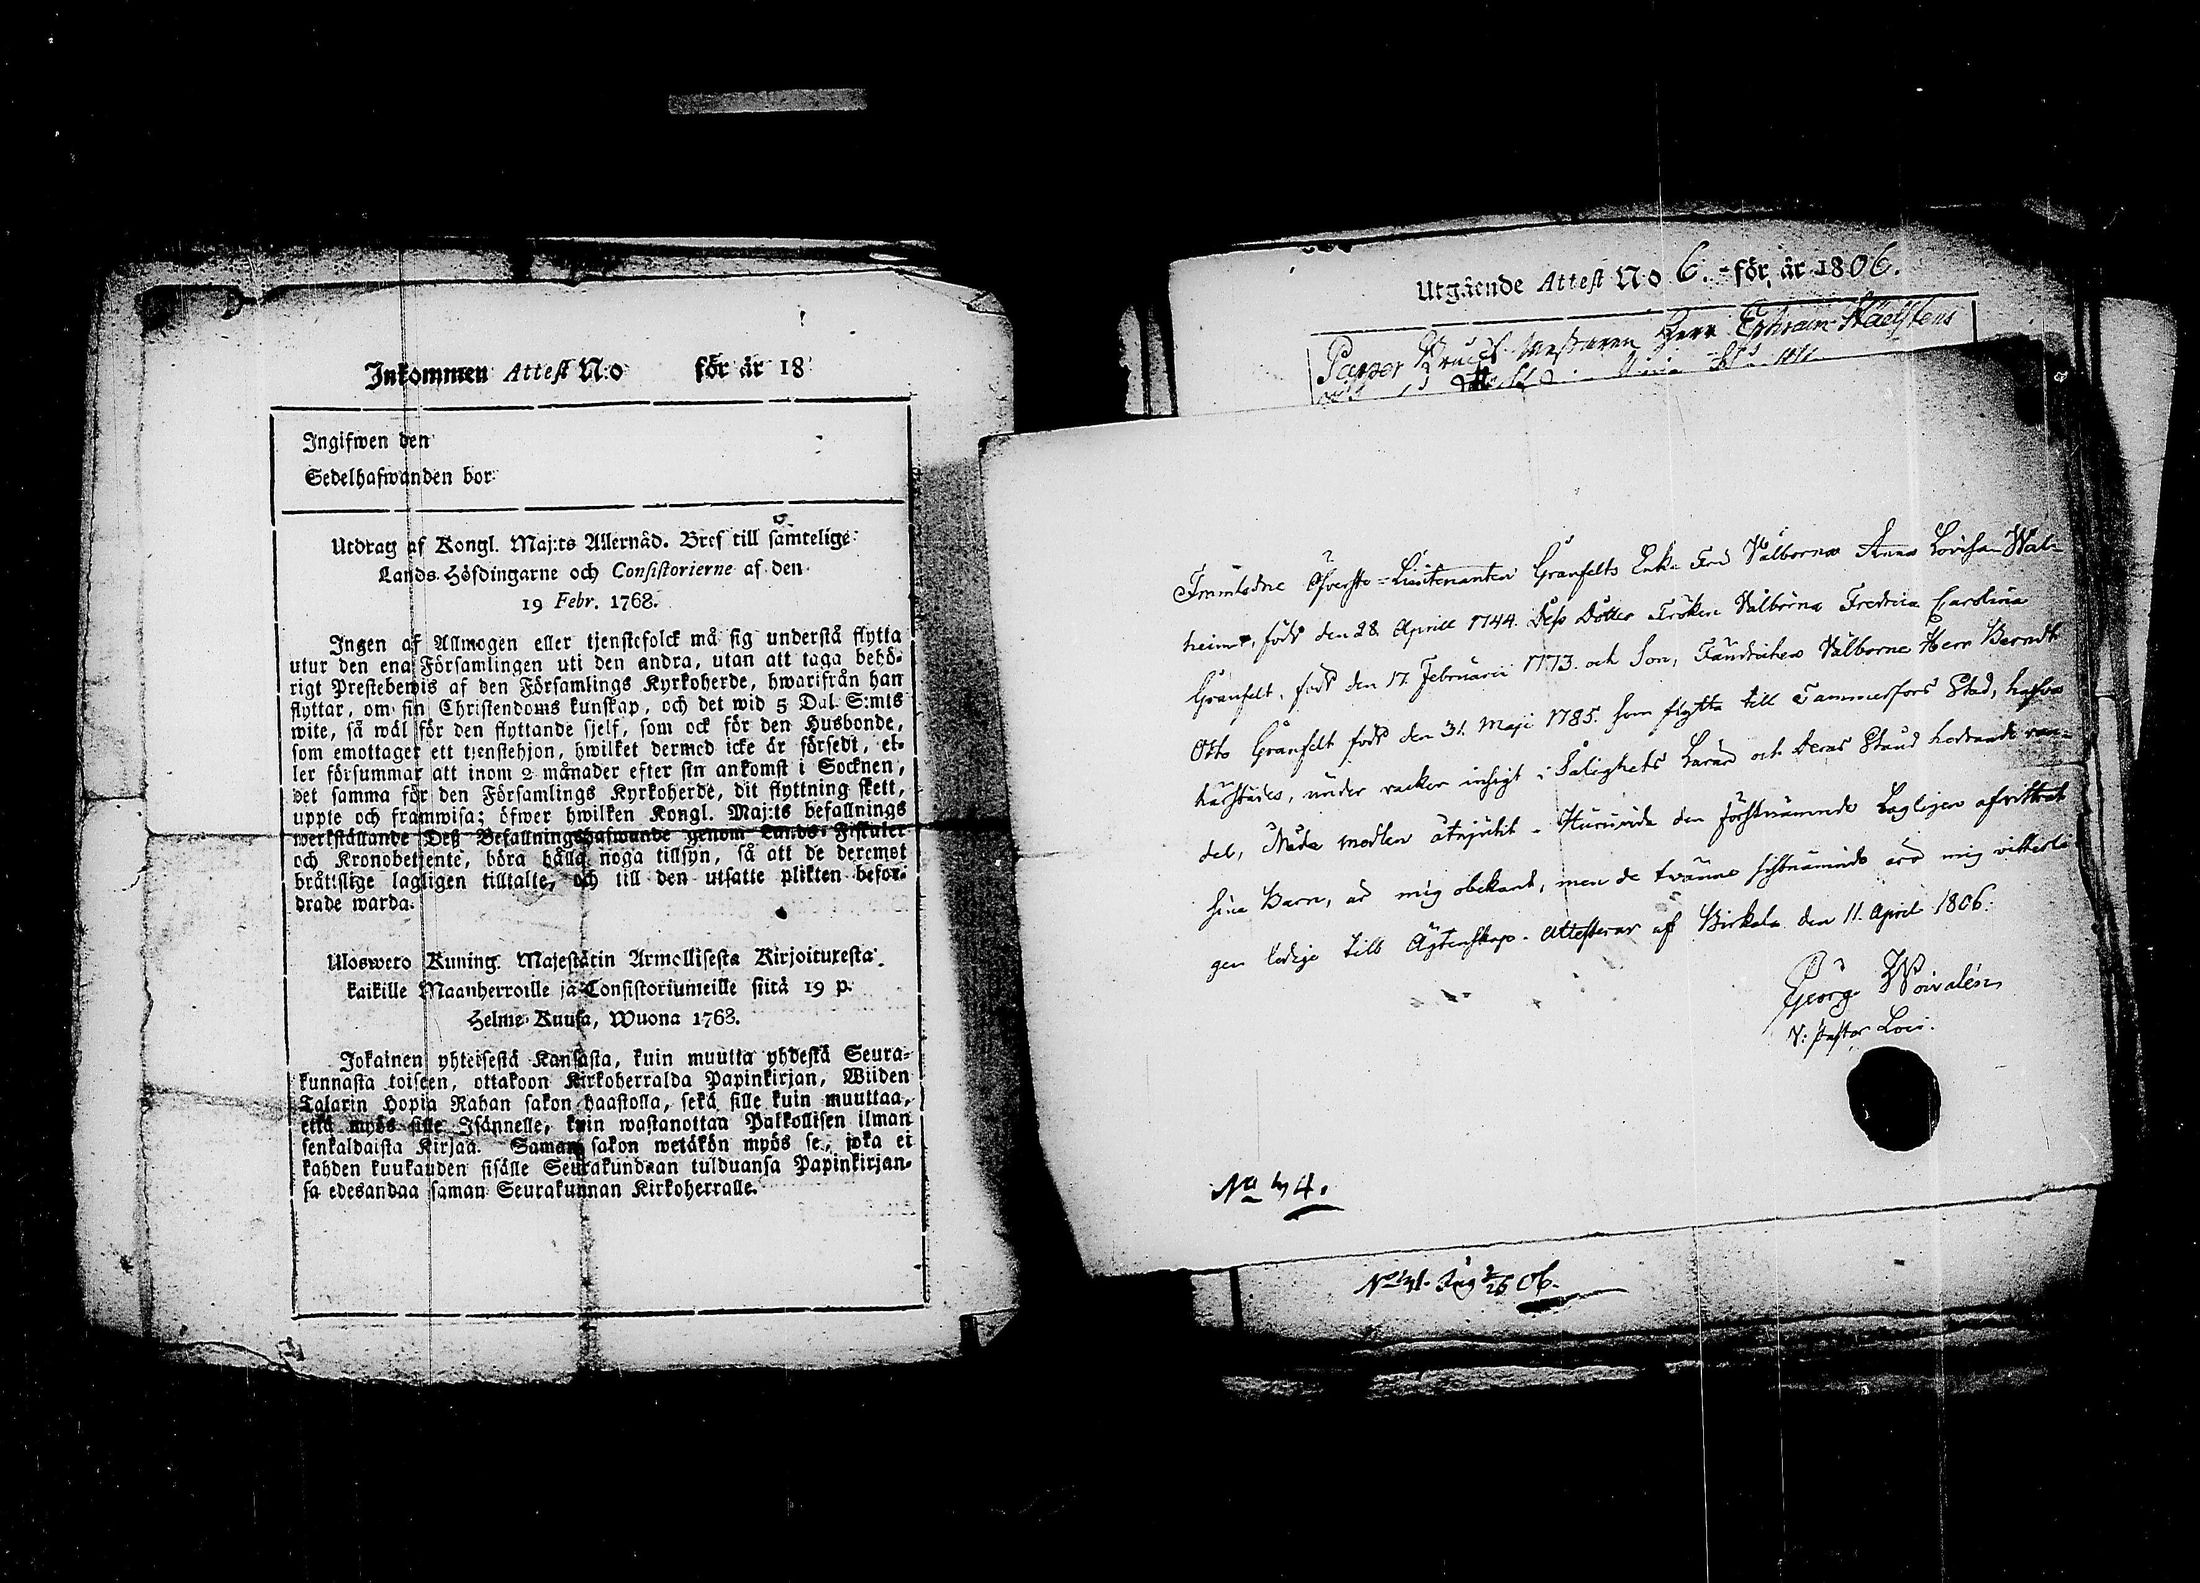 Inkommen Attest N:o för år 18
Ingifwen den
Sedelhafwanden bor
Utdrag af Kongl. Maj:ts Allernåd. Bref till samtelige
Lands-Höfdingarne och Consistorierne af den
19 Febr. 1768.
Ingen af Allmogen eller tjenstefolck må sig understå flytta
utur den ena Församlingen uti den andra, utan att taga behö-
rigt Prestebewis af den Församlings Kyrkoherde, hwarifrån han
flyttar, om sin Christendoms kunskap, och det wid 5 Dal. S:mts
wite, så wäl för den flyttande sjelf, som ock för den Husbonde,
som emottager ett tjenstehjon, hwilket dermed icke är försedt, el-
ler försummar att inom 2 månader efter sin ankomst i Socknen,
det samma för den Församlings Kyrkoherde, dit flyttning skett,
uppte och framwisa; öfwer hwilken Kongl. Maj:ts befallnings
werkställande Deß Befallningshafwande genom Lands-Fiskaler
och Kronobetjente, böra hålla noga tillsyn, så att de deremot
bråttslige lagligen tilltalte, och till den utsatte plikten befor-
drade warda.
Uloswero Kuning. Majestätin Armollisesta Kirjoituxesta
kaikille Maanherroille ja Consistoriumeille siitä 19 p.
Helme-Kuusa, Wuona 1768.
Jokainen yhteisestä Kansasta, kuin muutta yhdestä Seura-
kunnasta toiseen, ottakoon Kirkoherralda Papinkirjan, Wiiden
Talarin Hopia Rahan sakon haastolla, sekä sille kuin muuttaa,
että myös sille Isännelle, kuin wastanottaa Palkollisen ilman
senkaldaista Kirjaa. Saman sakon wetäkön myös se, joka ei
kahden kuukauden sisälle Seurakundaan tulduansa Papinkirjan-
sa edesandaa saman Seurakunnan Kirkoherralle.
Utgående Attest No 6. för år 1806.
Papper Bruks Mästaren Herr Ephraim
Öfverste-Lieutenanten Granfelts Enka Fru Välborna Anna Lovisa Wal-
heim, född den 28 Aprill 1744. Dess Dotter Fröken Välborna Fredrica Carolina
Granfelt, född den 17. Februarii 1773. och Son, Fändrichen Välborne Herr Berndt
Otto Granfelt född den 31. Maji 1785. som flytta till Tammerfors Stad, hafva
härstädes, under vacker insigt i Salighets Läran och deras Stånd hedrande van-
del, Nåda medlen åtnjutit. Huruvida den förstnämnde Lagligen afvittrat
sina Barn, är mig obekant, men de tvänne sistnämnde äro mig vitterli-
gen ledige till Ägtenskap. Attesterar af Birkala den 11. April 1806.
Georg Woivalén
V: Pastor Loci.
No 44.
06.